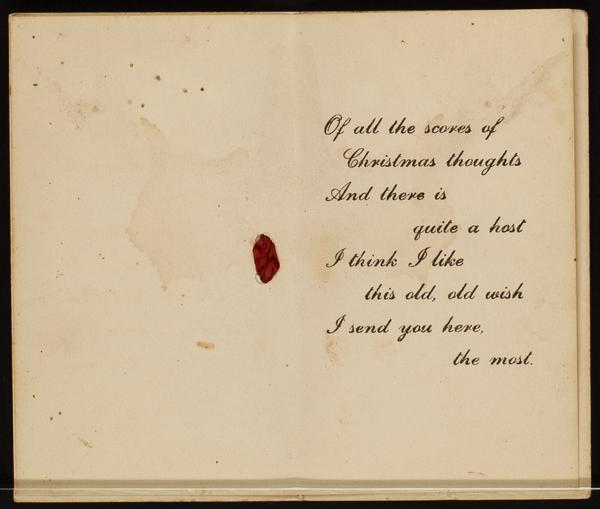 Of all the scores of
Christmas thoughts
And there is
quite a host
I think I like
this old, old wish
I send you here,
the most.